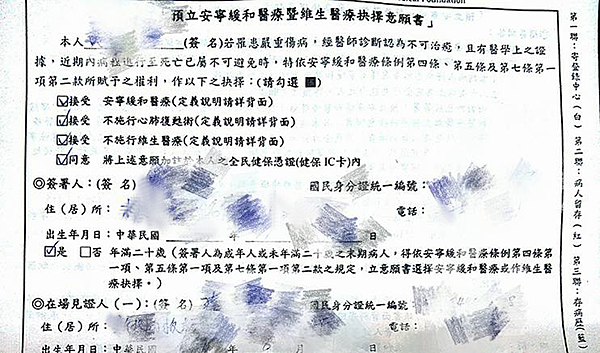 Foundation
預立安寧緩和醫療暨維生醫療抉擇意願書」
本人 (簽名)若罹患嚴重傷病,經醫師診斷認為不可治癒,且有醫學上之證
據,近期內病程進行至死亡已屬不可避免時,特依安寧緩和醫療條例第四條、第五條及第七條第一
項第二款所賦予之權利,作以下之抉擇:(請勾選 ■)
☑接受 安寧緩和醫療(定義說明請詳背面)
☑接受 不施行心肺復甦術(定義說明請詳背面)
☑接受 不施行維生醫療(定義說明請詳背面)
☑同意 將上述意願加註於本人之全民健保憑證(健保IC卡)內
◎簽署人:(簽名) 國民身分證統一編號:
住(居)所: 電話:
出生年月日:中華民國 年
☑是 □否 年滿二十歲(簽署人為成年人或未年滿二十歲之末期病人,得依安寧緩和醫療條例第四條第
一項、第五條第一項及第七條第一項第二款之規定,立意願書選擇安寧緩和醫療或作維生醫療
抉擇。)
◎在場見證人(一):(簽名) 國民身分證統一編號:
住(居)所: 電話:
出生年月日:中華民國 年 月 日
第一聯:寄登錄中心(白) 第二聯:病人留存(紅) 第三聯:存病歷(藍)